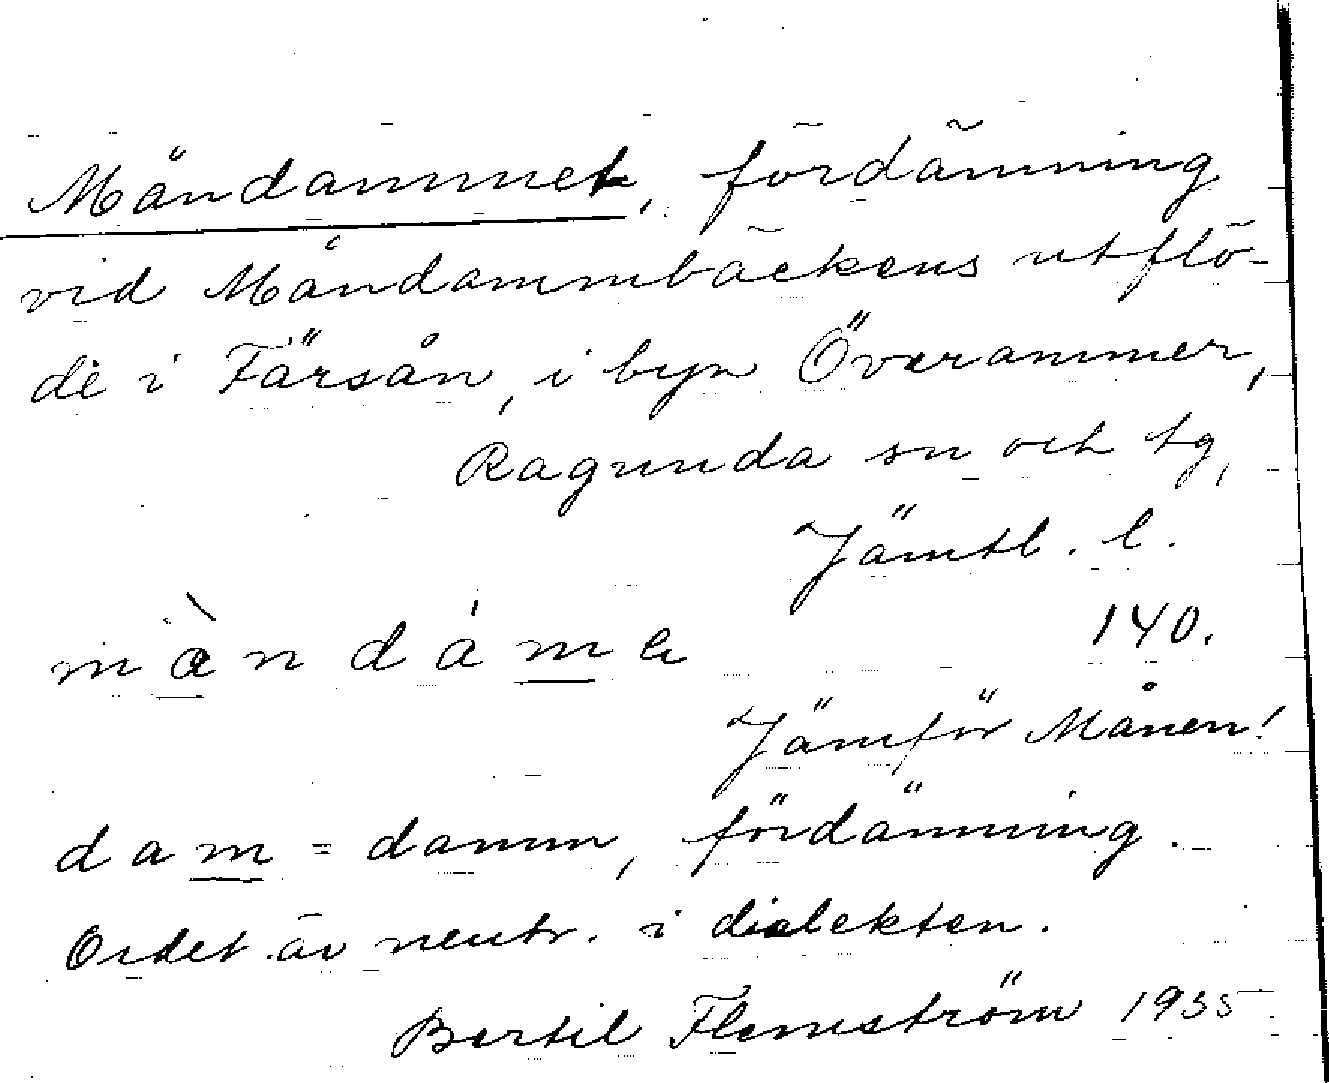 Måndammet, fördämning
vid Måndammbäckens utflö-
de i Färsån, i byn Överammer,
Ragunda sn och tg,
Jämtl. l.
màndáma
140.
Jämför Månen!
dam = damm, fördämning.
Ordet är neutr. i dialekten.
Bertil Flemström 1935